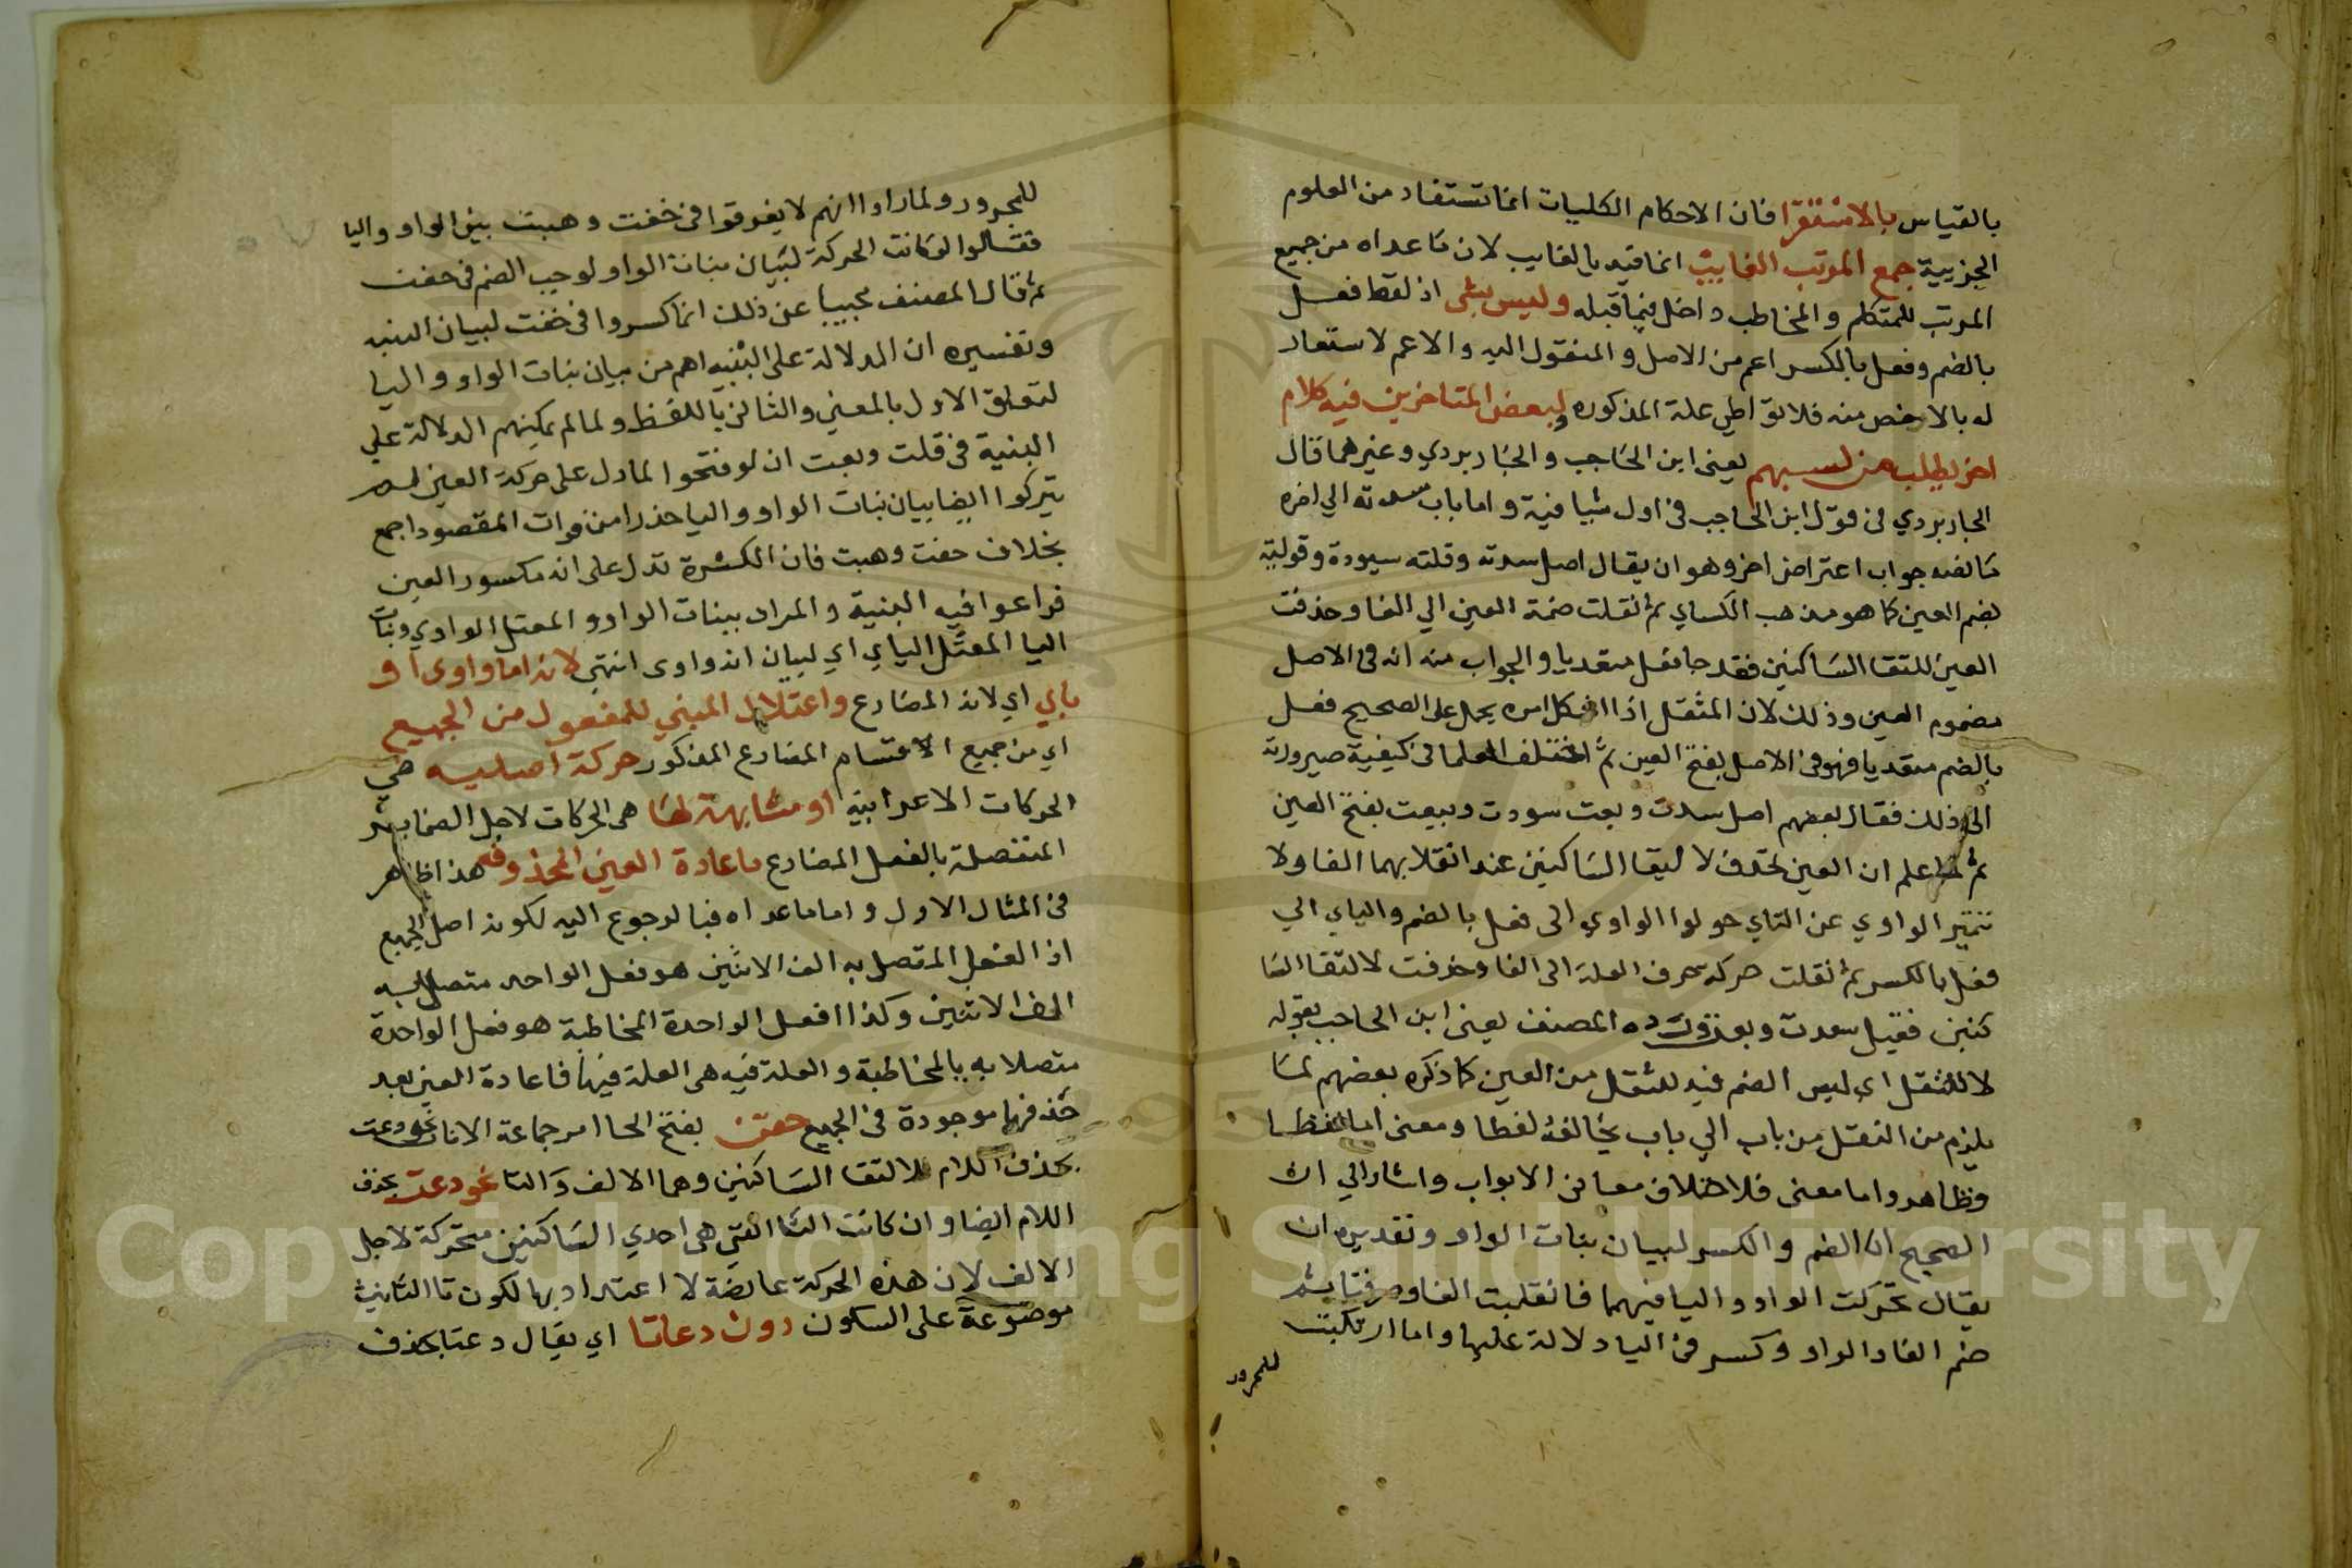 بالقياس بالاستقرا فان الاحكام الكليات انما تستفاد من العلوم
الجزيية جمع المرتب الغايب انما قيد بالغايب لان ما عداه من جميع
المرتب للمتكلم والمخاطب داخل فيما قبله وليس بشي اذ لفظ فعل
بالضم وفعل بالكسر اعم من الاصل والمنقول اليه والاعم لا ستعار
له بالاخص منه فلا علة المذكوره ولبعض المتاخرين فيه كلام
اخر يطلب من يعني ابن الحاجب والجاربردي وغيرهما قال
الجاربردي في قول ابن الحاجب في اول شافية واما باب سدته الي اخره
جواب اعتراض اخر وهو ان يقال اصل سدته وقلته سيودة وقولية
بضم العين كما هو مذهب الكساي ثم نقلت ضمة العين الي الفا وحذفت
العين للتقا الساكنين فقد جا فعل متعديا والجواب منه انه في الاصل
مضموم العين وذلك لان المثقل اذا اشكل امره يحمل على الصحيح فعل
بالضم متعديا فهو في الاصل بفتح العين ثم اختلف العلما في كيفية صيرورته
الى ذلك فقال بعضهم اصل سدت وبعت سودت وبيعت بفتح العين
ثم لما علم ان العين تحذف لا ليقا الساكنين عند انقلابهما الفا ولا
تتميز الواوي عن التاي حولوا الواوي الى فعل بالضم والياي الي
فعل بالكسر ثم نقلت حركة حرف العلة الى الفا وحذفت لالتقا السا
كنين فقيل سدت وبعت ورده المصنف يعني ابن الحاجب بقوله
لا للنقل اي ليس الضم فيه للنقل من العين كما ذكره بعضهم لما
يلزم من النقل من باب الي باب يخالفه لفظا ومعنى اما لفظا
فظاهر واما معنى فلاختلاف معاني الابواب واشار الي ان
الصحيح ان الضم والكسر لبيان بنات الواو وتقديره ان
يقال تحركت الواو واليا فيهما فانقلبت الفا وحذفتا ثم
ضم الفا والواو وكسر في اليا دلالة عليها واما ارتكبت
للمجرور
للمجرور ولما راوا انهم لا يفرقوا في خفت وهبت بين الواو واليا
فقالوا لو كانت الحركة لبيان بنات الواو لوجب الضم في خفت
ثم قال المصنف مجيبا عن ذلك انما كسروا في خفت لبيان البنيه
وتفسيره ان الدلالة على البنيه اهم من بيان بنات الواو واليا
لتعلق الاول بالمعني والثاني باللفظ ولما لم يمكنهم الدلالة علي
البنية في قلت وبعت ان لو فتحوا لما دل على حركة العين لم
يتركوا ايضا بيان بنات الواو واليا حذرا من فوات المقصود اجمع
بخلاف خفت وهبت فان الكسرة تدل على انه مكسور العين
فراعوا فيه البنية والمراد ببنات الواو والمعتل الواوي وبنات
اليا المعتل الياي اي لبيان انه واوى انتهي لانه اما واوى او
ياي اي لانه المضارع واعتلال المبني للمفعول من الجميع
اي من جميع الاقسام المضارع المذكور حركة اصليه هي
الحركات الاعرابية او مشابهة لها هي الحركات لاجل الضماير
المتصلة بالفعل المضارع ما عادة العين المحذوفه هذا ظاهر
في المثال الاول واما ما عداه فبالرجوع اليه لكونه اصل الجميع
اذ الفعل المتصل به الف الاثنين هو فعل الواحد متصل به
الف الاثنين وكذا افعل الواحدة المخاطبة هو فعل الواحدة
متصلا به يا المخاطبة والعلة فيه هي العلة فيها فاعادة العين بعد
حذفها موجودة في الجميع خفن بفتح الخا امر جماعة الاناث نحو دعت
بحذف اللام لالتقا الساكنين وهما الالف والتا نحو دعتا بحذف
اللام ايضا وان كانت التا التي هي احدي الساكنين متحركة لاجل
الالف لان هذه الحركة عارضة لا اعتداد بها لكون تا التانيث
موضوعة على السكون دون دعاتا اي يقال دعتا بحذف
Copyright © King Saud University